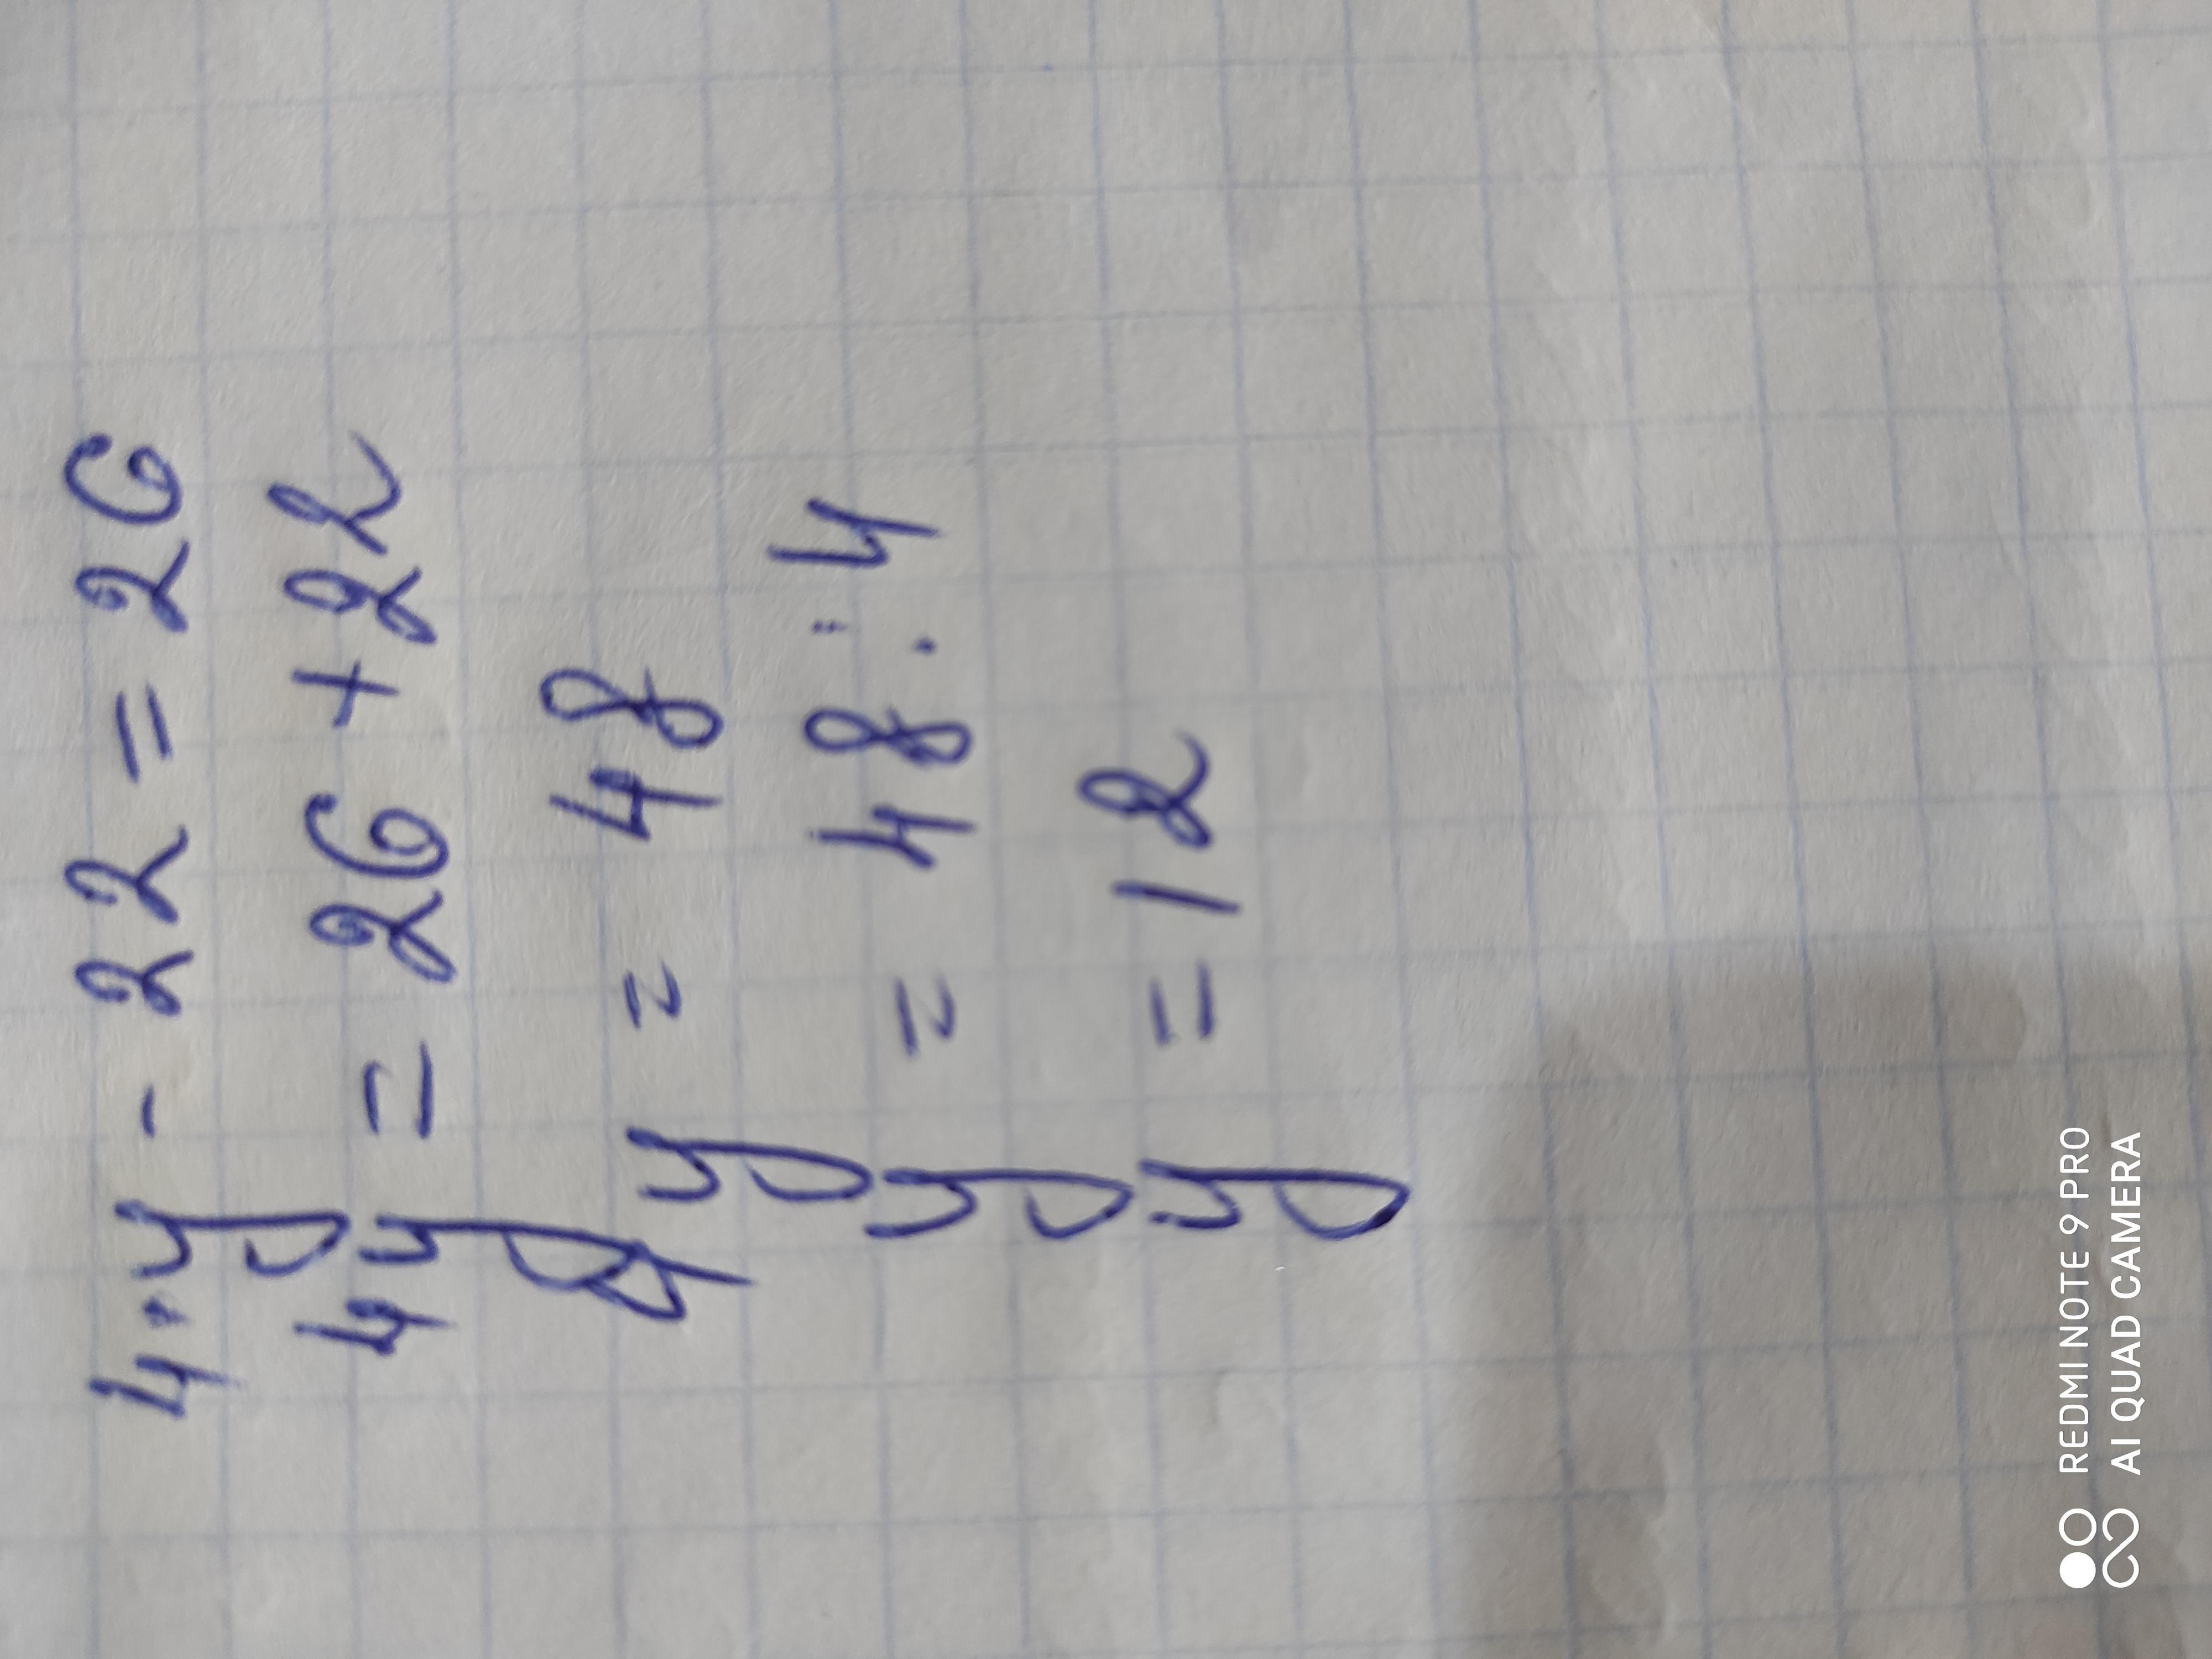 4·y - 22 = 26
4y = 26 + 22
4y = 48
y = 48 : 4
y = 12
REDMI NOTE 9 PRO
AI QUAD CAMERA